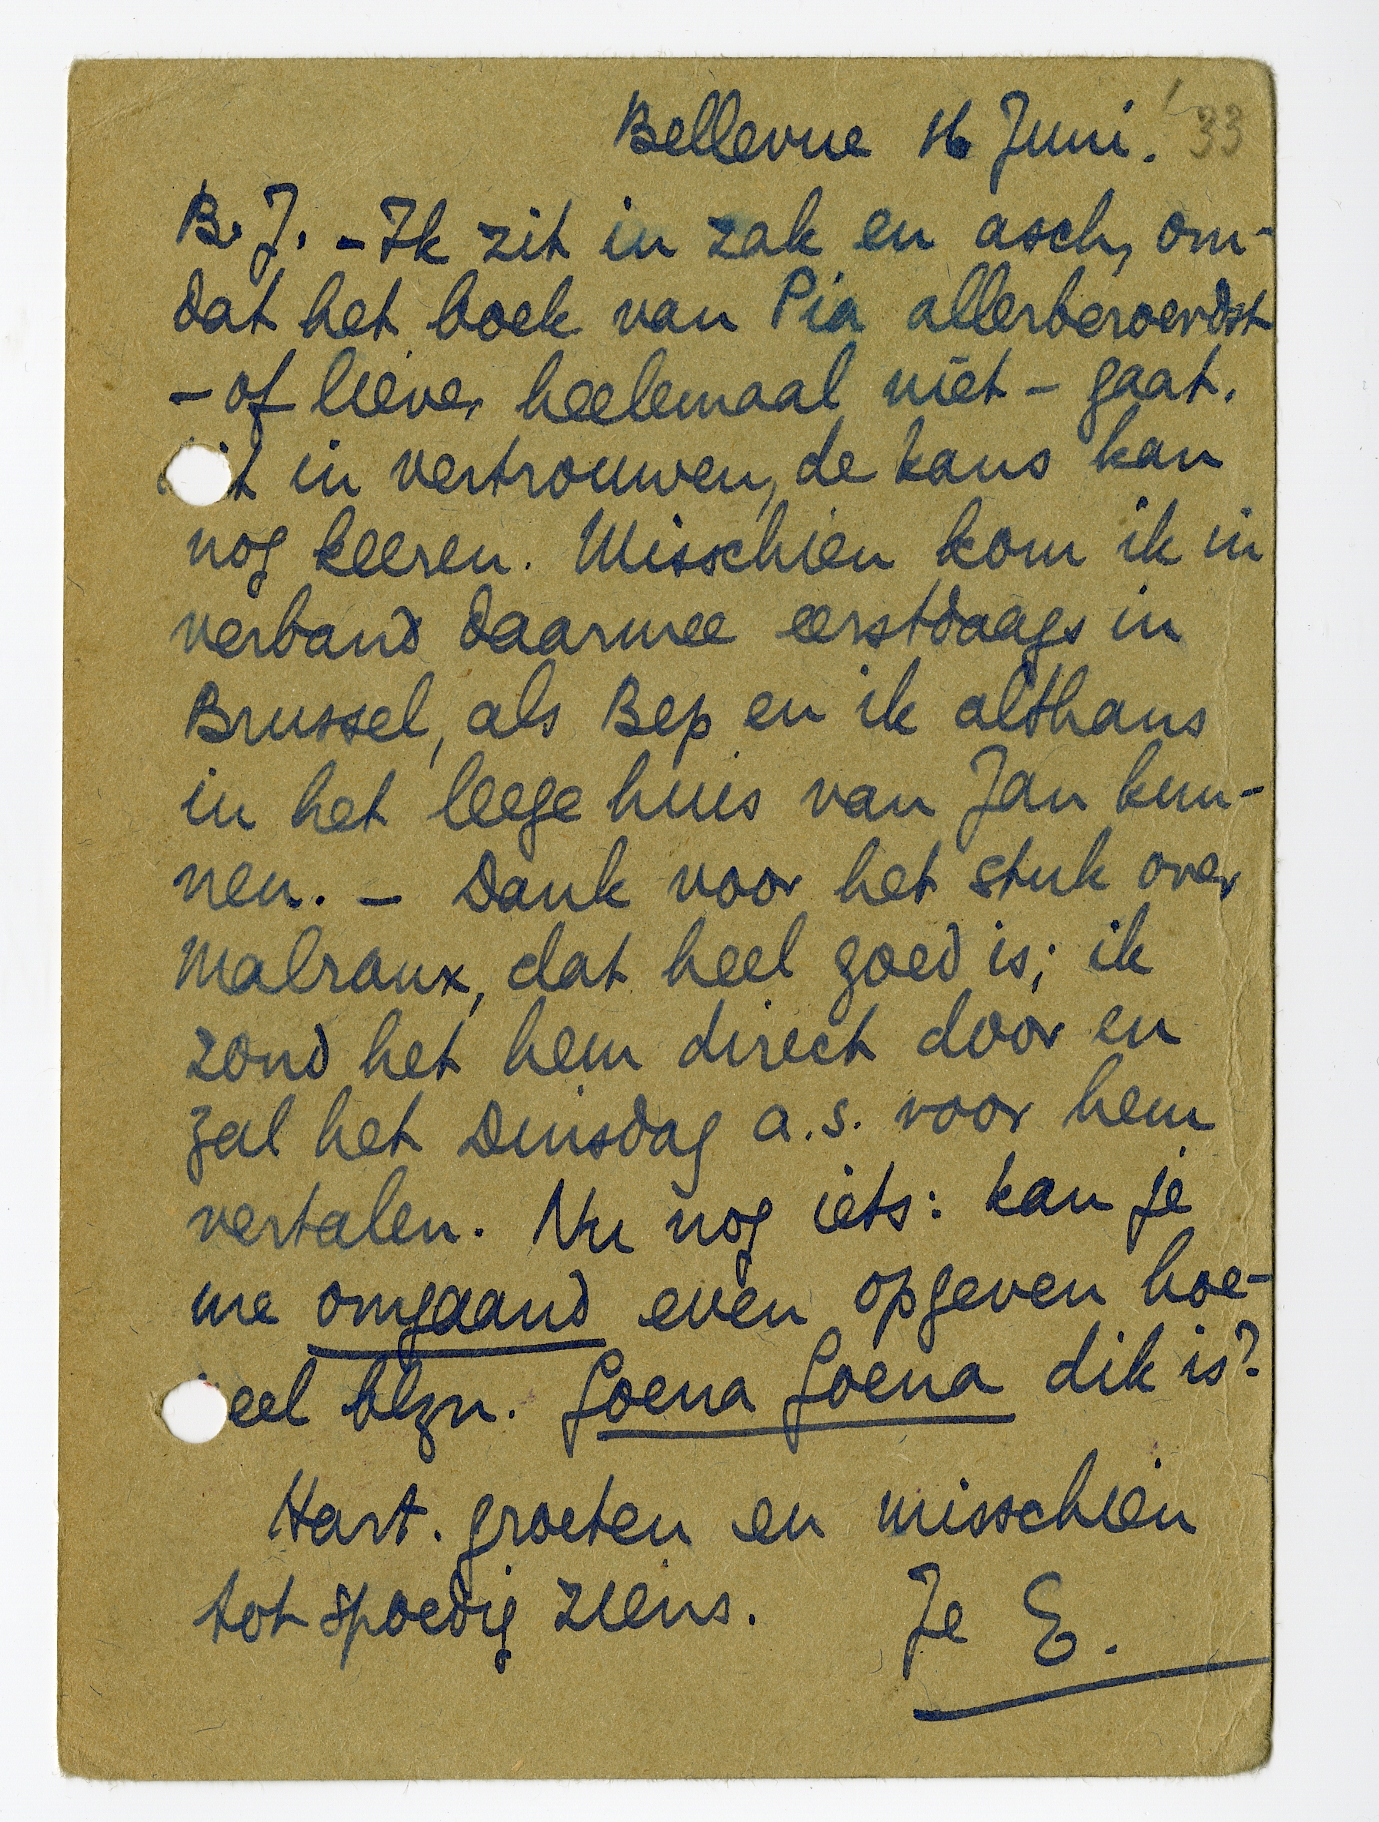 Bellevue 16 Juni. '33
B. J. - Ik zit in zak en asch, om-
dat het boek van Pia allerberoerdst
- of liever heelemaal niét - gaat.
in vertrouwen, de kans kan
nog keeren. Misschien kom ik in
verband daarmee eerstdaags in
Brussel, als Bep en ik althans
in het leege huis van Jan kun-
nen. - Dank voor het stuk over
Malraux, dat heel goed is; ik
zond het hem direct door en
zal het Dinsdag a.s. voor hem
vertalen. Nu nog iets: kan je
me omgaand even opgeven hoe-
veel blzn. Goena Goena dik is?
Hart. groeten en misschien
tot spoedig ziens. Je E.